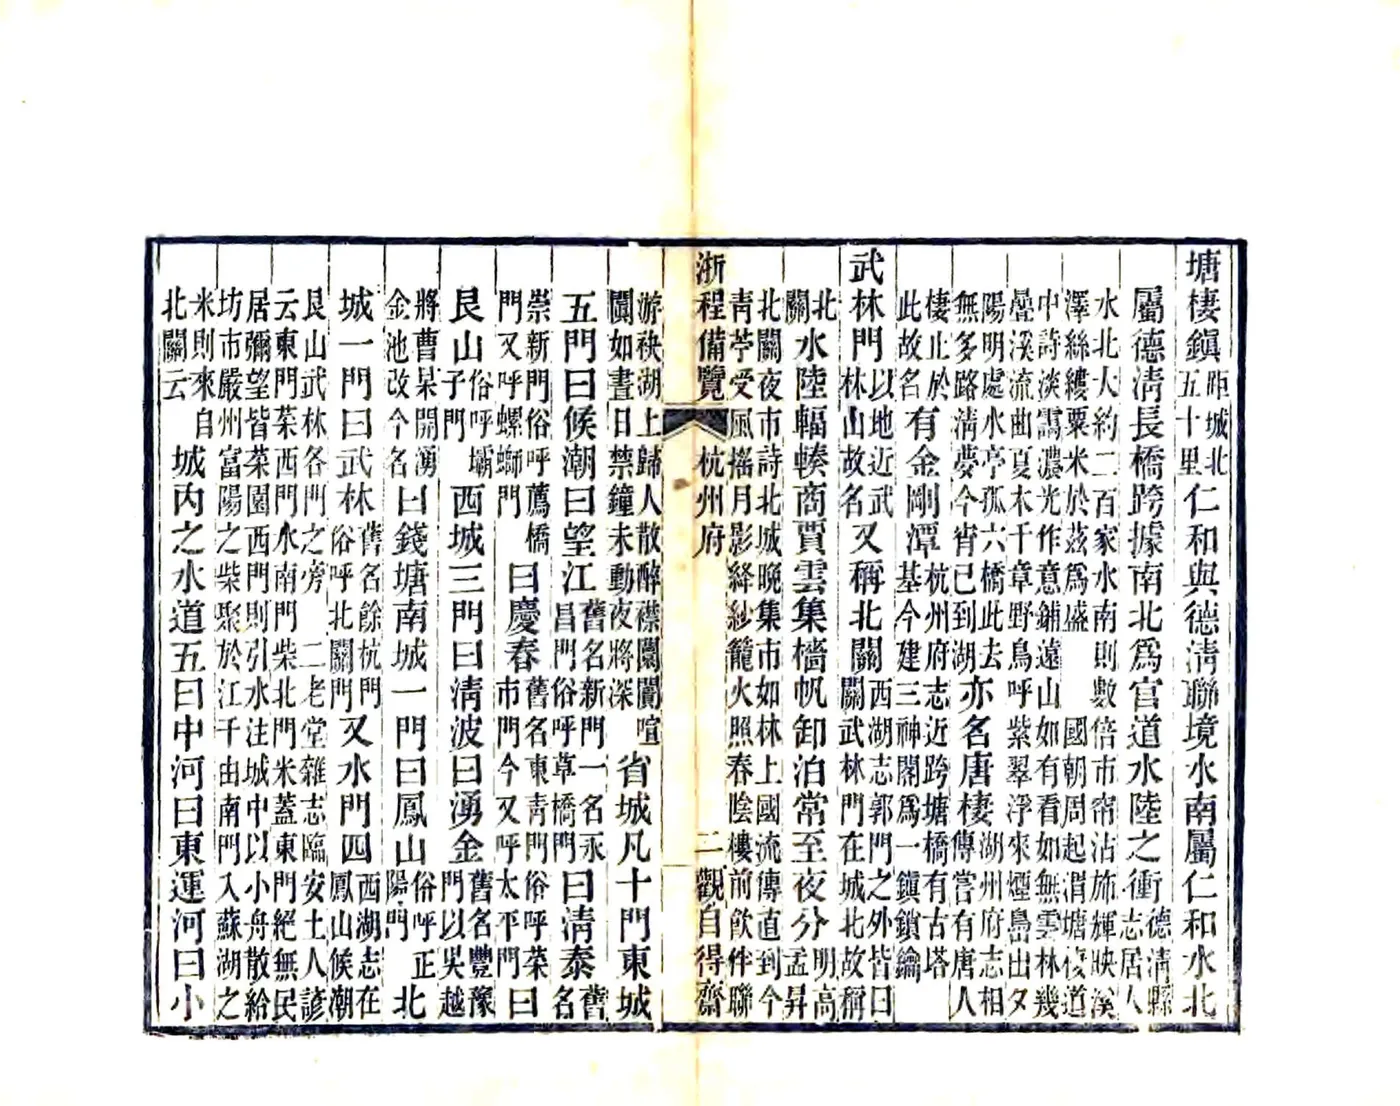 塘棲鎮距城北五十里仁和與德淸聯境水南屬仁和水北
屬德淸長橋跨據南北爲官道水陸之衝德淸縣志居人
水北大約二百家水南則數倍市帘沽旆輝映溪
澤絲縷粟米於茲爲盛 國朝周起渭塘棲道
中詩淡靄濃光作意鋪遠山如有看如無雲林幾
疊溪流曲夏木千章野鳥呼紫翠浮來煙島出夕
陽明處水亭孤六橋此去無多路淸夢今宵已到湖亦名唐棲湖州府志相傳嘗有唐人
棲止於此故名有金剛潭杭州府志近跨塘橋有古塔基今建三神閣爲一鎮鎖鑰
武林門以地近武林山故名又稱北關西湖志郭門之外皆曰關武林門在城北故稱
北關水陸輻輳商賈雲集檣帆卸泊常至夜分明高孟昇
北關夜市詩北城晚集市如林上國流傳直到今
靑苧受風搖月影絳紗籠火照春陰樓前飮伴聯
浙程備覽 杭州府 二 觀自得齋
游袂湖上歸人散醉襟闤闠喧闐如晝日禁鐘未動夜將深省城凡十門東城
五門曰候潮曰望江舊名新門一名永昌門俗呼草橋門曰淸泰舊名
崇新門俗呼薦橋門又呼螺螄門曰慶春舊名東靑門俗呼菜市門今又呼太平門曰
艮山俗呼壩子門西城三門曰淸波曰湧金舊名豐豫門以吳越
將曹杲開湧金池改今名曰錢塘南城一門曰鳳山俗呼正陽門北
城一門曰武林舊名餘杭門俗呼北關門又水門四西湖志在鳳山候潮
艮山武林各門之旁 二老堂雜志臨安土人諺
云東門菜西門水南門柴北門米蓋東門絕無民
居彌望皆菜園西門則引水注城中以小舟散給
坊市嚴州富陽之柴聚於江干由南門入蘇湖之
米則來自北關云城內之水道五曰中河曰東運河曰小